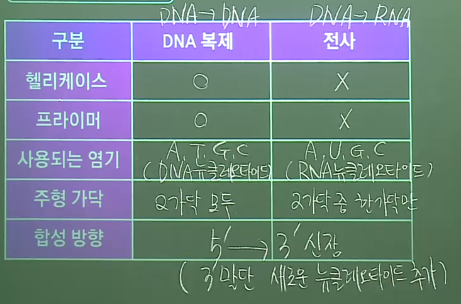 DNA→DNA DNA→RNA
구분 DNA 복제 전사
헬리케이스 O X
프라이머 O X
사용되는 염기 A, T, G, C A, U, G, C
(DNA뉴클레오타이드) (RNA뉴클레오타이드)
주형 가닥 2가닥 모두 2가닥 중 한가닥만
합성 방향 5'→3' 신장
(3'말단 새로운 뉴클레오타이드 추가)